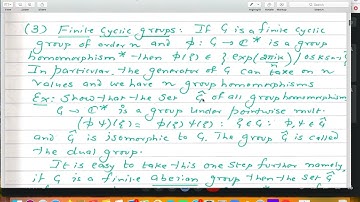 (3) Finite Cyclic groups: If G is a finite cyclic
group of order n and φ: G → ℂ* is a group
homomorphism* then φ(ξ) ∈ { exp(2πik/n) : 0≤k≤n-1 }
In particular the generator of G can take on n
values and we have n group homomorphisms
Ex: Show that the set Ĝ of all group homomorphisms
G → ℂ* is a group under pointwise mult:
(φψ)(ξ) = φ(ξ) ψ(ξ) : ξ ∈ G; φ, ψ ∈ Ĝ
and Ĝ is isomorphic to G. The group Ĝ is called
the dual group.
It is easy to take this one step further namely,
if G is a finite abelian group then the set Ĝ